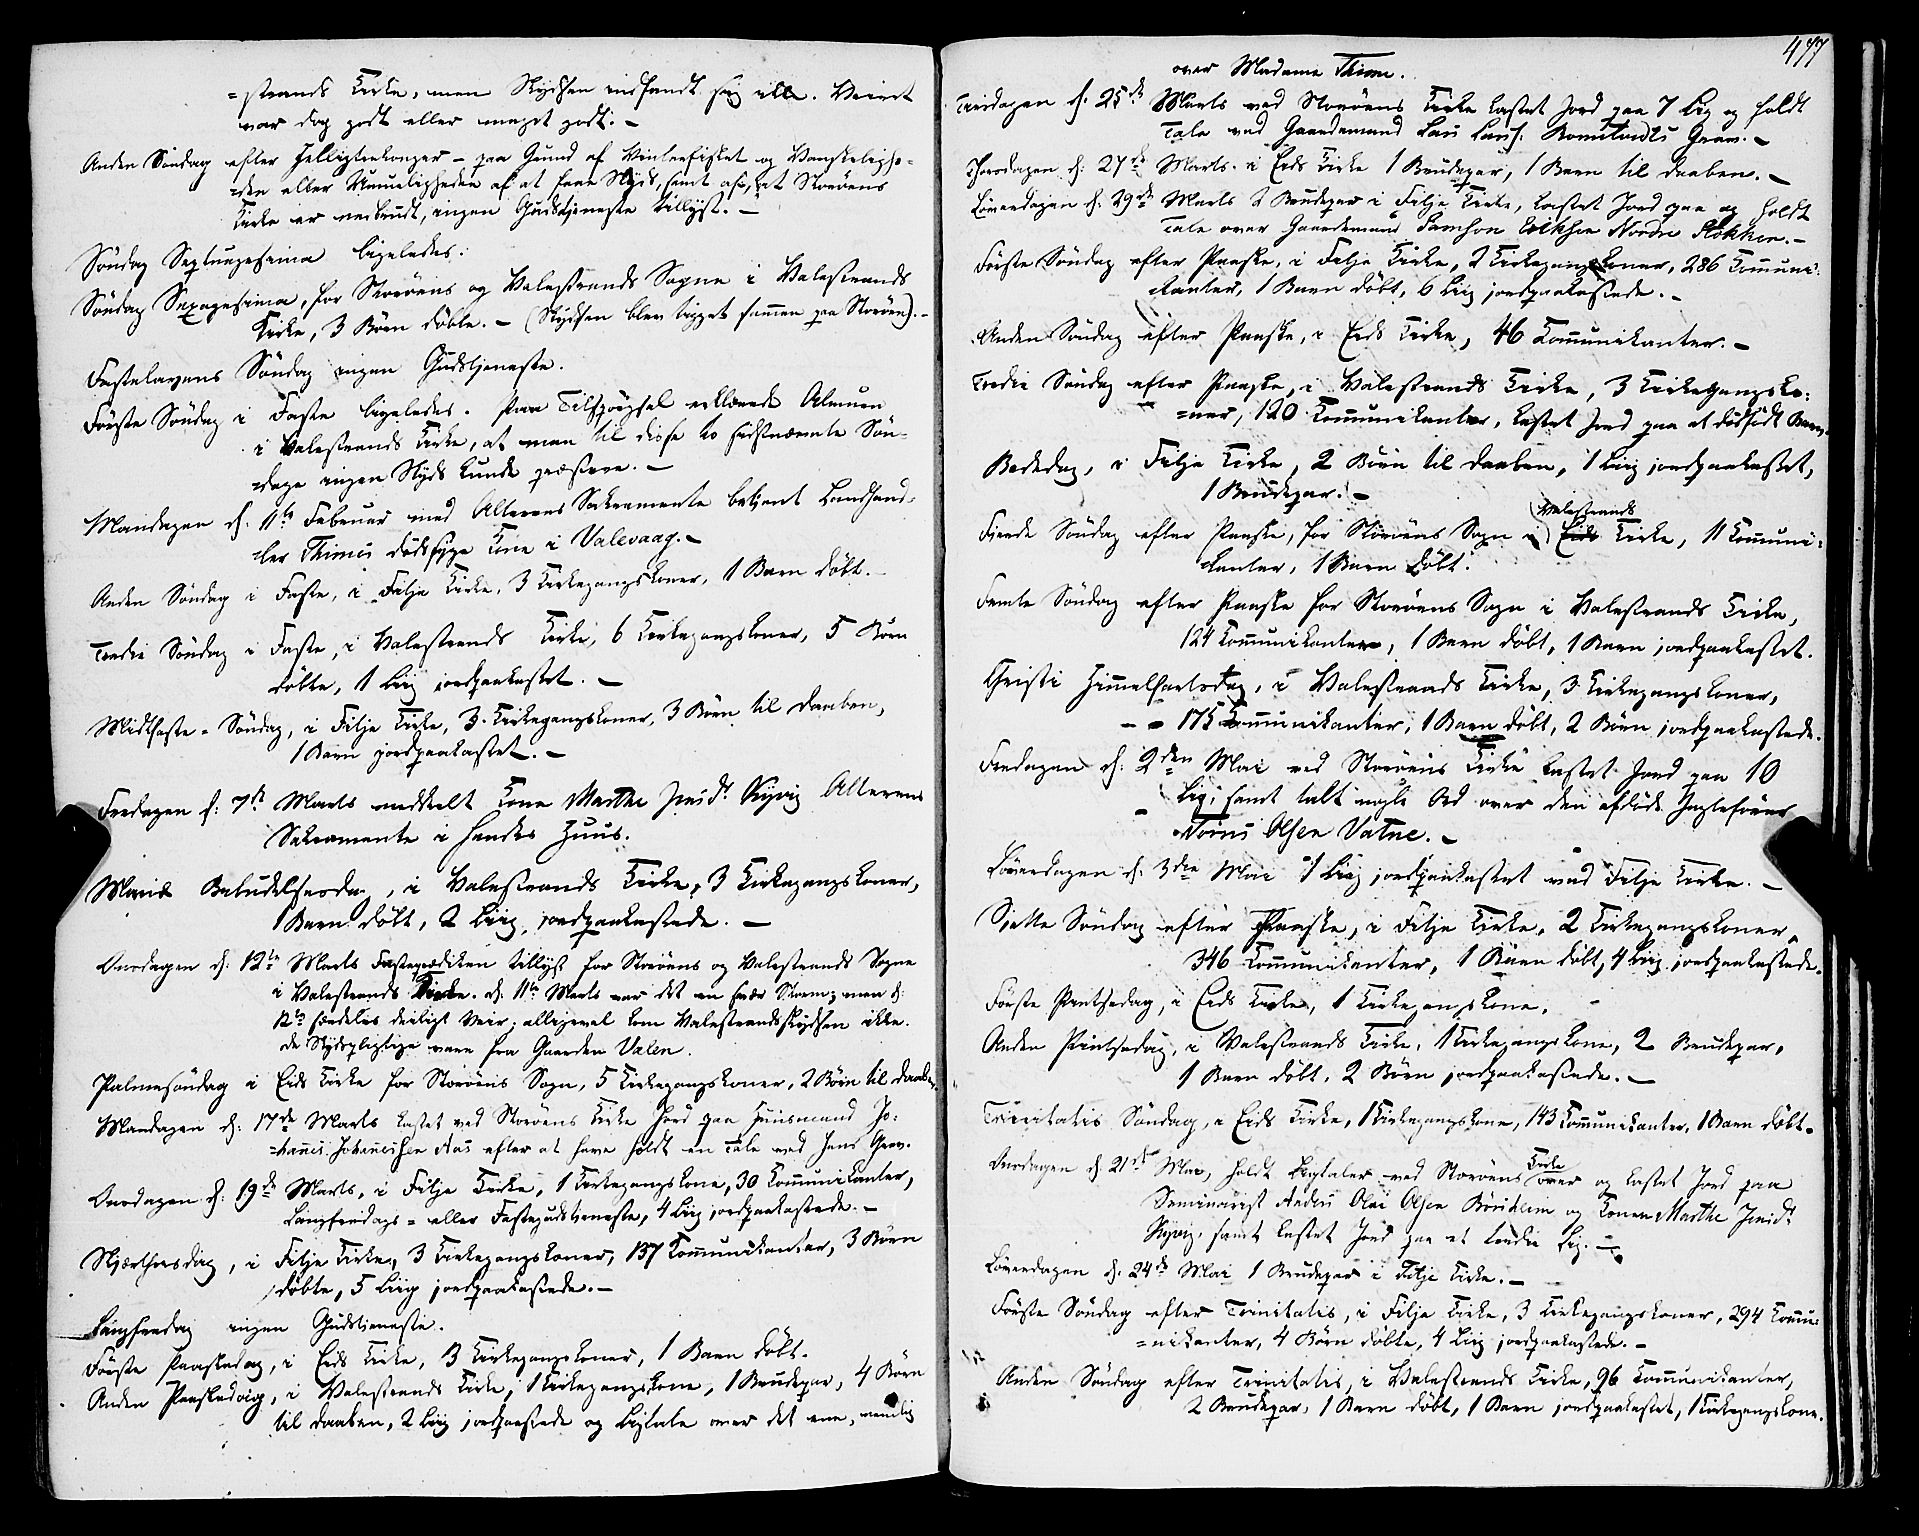 =strands Kirke, men Skydsen indfandt sig ikke. Veiret
var dog godt eller meget godt. –
Anden Söndag efter Helligtrekonger – paa Grund af Vinterfisket og Vanskelighe=
=den eller Umueligheden af at faae Skyds, samt af, at Storöens
Kirke er nedbrudt, ingen Gudstjeneste tillyst. –
Söndag Septuagesima ligeledes.
Söndag Sexagesima, for Storöens og Valestrands Sogne i Valestrands
Kirke, 3 Börn döbte. – (Skydsen blev bygget sammen paa Storöen). –
Fastelavens Söndag ingen Gudstjeneste.
Förste Söndag i Faste ligeledes. Paa Tilspörgsel erklærede Almuen
i Valestrands Kirke, at man til disse to sidstnævnte Sön=
=dage ingen Skyds kunde præstere. –
Mandagen d. 11te Februar med Alterens Sakramente betjent Landhand=
=ler Thimes dödssyge Kone i Valevaag. –
Anden Söndag i Faste, i Fitje Kirke, 3 Kirkegangskoner, 1 Barn döbt.
Tredie Söndag i Faste, i Valestrands Kirke, 6 Kirkegangskoner, 5 Börn
döbte, 1 Liig jordpaakastet. –
Midfaste-Söndag, i Fitje Kirke, 3 Kirkegangskoner, 3 Börn til Daaben,
1 Barn jordpaakastet. –
Fredagen d. 7de Marts meddeelt Kone Marthe Jensd. Rÿvig Alterens
Sakramente i hendes Huus.
Mariæ Bebudelsesdag, i Valestrands Kirke, 3 Kirkegangskoner,
1 Barn döbt, 2 Liig jordpaakastede. –
Onsdagen d. 12te Marts Fasteprædiken tillyst for Storöens og Valestrands Sogne
i Valestrands Kirke. d. 11te Marts var det en svær Storm; men d.
12te særdeles deiligt Veir, alligevel kom Valestrandsskydsen ikke.
De Skydspligtige vare fra Gaarden Valen.
Palmesöndag i Eids Kirke for Storöens Sogn, 5 Kirkegangskoner, 2 Börn til Daaben.
Mandagen d. 17de Marts kastet ved Storöens Kirke Jord paa Huusmand Jo=
=hannes Johannessen Aas efter at have holdt en Tale ved hans Grav.
Onsdagen d. 19de Marts, i Fitje Kirke, 1 Kirkegangskone, 30 Kommunikanter,
Langfredags= eller Fastegudstjeneste, 4 Liig jordpaakastede. –
Skjærthorsdag, i Fitje Kirke, 3 Kirkegangskoner, 137 Kommunikanter, 3 Börn
döbte, 5 Liig jordpaakastede. –
Langfredag ingen Gudstjeneste.
Förste Paaskedag, i Eids Kirke, 3 Kirkegangskoner, 1 Barn döbt.
Anden Paaskedag, i Valestrands Kirke, 1 Kirkegangskone, 1 Brudepar, 4 Börn
til Daaben, 2 Liig jordpaastede og Ligtale over det ene, nemlig
477
over Madame Thime.
Tirsdagen d. 25de Marts ved Storöens Kirke kastet Jord paa 7 Lig og holdt
Tale ved Gaardemand Lars Larss. Grav. –
Thorsdagen d. 27de Marts i Eids Kirke 1 Brudepar, 1 Barn til Daaben. –
Löverdagen d. 29de Marts 2 Brudepar i Fitje Kirke, kastet Jord paa og holdt
Tale over Gaardemand Samson Eriksen Nordre Rökken. –
Förste Söndag efter Paaske, i Fitje Kirke, 2 Kirkegangskoner, 286 Kommuni=
kanter, 1 Barn döbt, 6 Liig jordpaakastede. –
Anden Söndag efter Paaske, i Eids Kirke, 46 Kommunikanter. –
Tredie Söndag efter Paaske, i Valestrands Kirke, 3 Kirkegangsko=
=ner, 120 Kommunikanter, kastet Jord paa et dödfödt Barn.
Bededag, i Fitje Kirke, 2 Börn til Daaben, 1 Liig jordpaakastet,
1 Brudepar. –
Valestrands
Fjerde Söndag efter Paaske, for Storöens Sogn i Eids Kirke, 11 Kommuni=
kanter, 1 Barn döbt.
Femte Söndag efter Paaske for Storöens Sogn i Valestrands Kirke,
124 Kommunikanter, 1 Barn döbt, 1 Barn jordpaakastet.
Christi Himmelfartsdag, i Valestrands Kirke, 3 Kirkegangskoner,
175 Kommunikanter, 1 Barn döbt, 2 Börn jordpaakastede.
Fredagen d. 2den Mai ved Storöens Kirke kastet Jord paa 10
Lig, samt talt nogle Ord over den aflöste
Törris Olsen Vatne. –
Löverdagen d. 3die Mai 1 Liig jordpaakastet ved Fitje Kirke. –
Sjette Söndag efter Paaske, i Fitje Kirke, 2 Kirkegangskoner,
346 Kommunikanter, 1 Barn döbt, 4 Liig jordpaakastede.
Förste Pintsedag, i Eids Kirke, 1 Kirkegangskone.
Anden Pintsedag, i Valestrands Kirke, 1 Kirkegangskone, 2 Brudepar,
1 Barn döbt, 2 Börn jordpaakastede. –
Trinitatis Söndag, i Eids Kirke, 1 Kirkegangskone, 143 Kommunikanter, 1 Barn döbt.
Onsdagen d. 21de Mai, holdt Ligtaler ved Storöens Kirke over og kastet Jord paa
Seminarist Anders Olai Olsen Börtheim og Konen Marthe Jensd.
Rÿvig, samt kastet Jord paa et tredie Lig. –
Löverdagen d. 24de Mai 1 Brudepar i Fitje Kirke. –
Förste Söndag efter Trinitatis, i Fitje Kirke, 3 Kirkegangskoner, 294 Kommu=
=nikanter, 4 Börn döbte, 4 Lig jordpaakastede. –
Anden Söndag efter Trinitatis, i Valestrands Kirke, 96 Kommunikanter,
2 Brudepar, 1 Barn döbt, 1 Barn jordpaakastet, 1 Kirkegangskone.